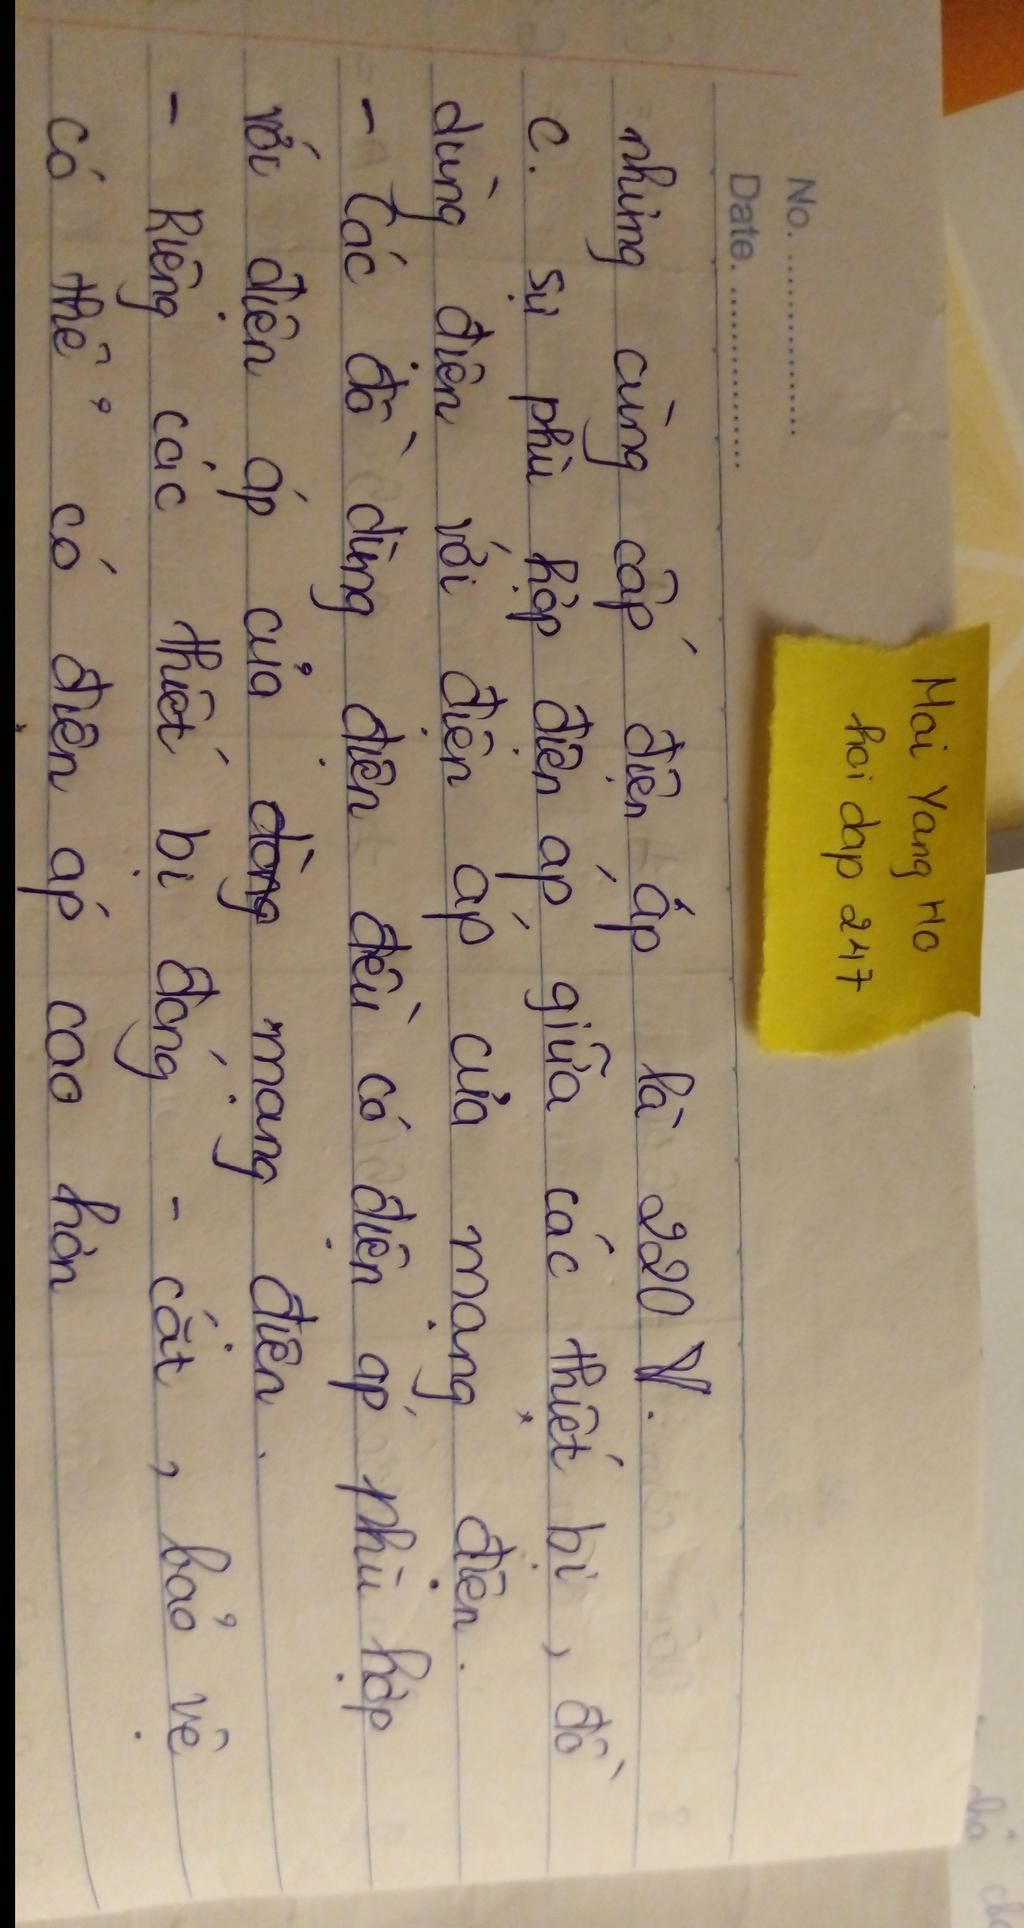 No. ................
Date. ................
Mai Vang Ho
hoi dap 247
nhưng cùng cấp điện áp là 220 V.
c. sự phù hợp điện áp giữa các thiết bị, đồ
dùng điện với điện áp của mạng điện.
- Các đồ dùng điện đều có điện áp phù hợp
với điện áp của dòng mạng điện.
- Riêng các thiết bị đóng - cắt, bảo vệ
có thể có điện áp cao hơn